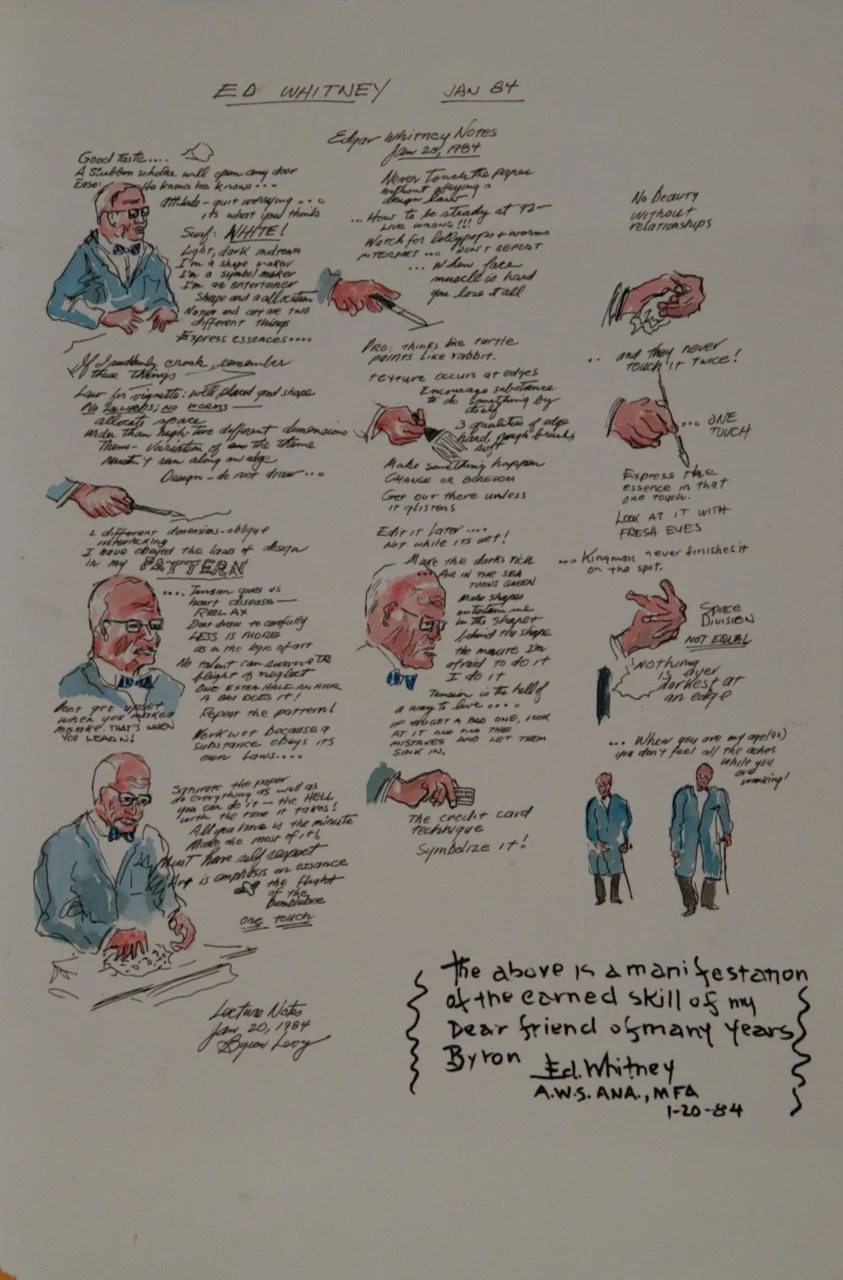 ED WHITNEY JAN 84
Good taste.....
A stubborn scholar will open any door
Ease: He knows he knows...
attitude - quit worrying...
its what you think
Surf: WHITE!
Light, dark midtown
I'm a shape maker
I'm a symbol maker
I'm an entertainer
Shape and allocation
Nature and art are two
different things
Express essences....
If I suddenly croak, remember
these things
Law for vignette: well placed good shape
allocate space
wider than high - two different dimensions
Theme - Variation of the theme
run along an edge
Design - do not draw...
2 different dimensions - oblique
interlocking
I have obeyed the laws of design
in my PATTERN
.... Tension gives us
heart disease -
RELAX
Dont draw to carefully
LESS IS MORE
as in the logic of art
No talent can survive the
blight of neglect
ONE EXTRA HALF AN HOUR
A DAY DOES IT!
Repeat the pattern!
Work wet because a
substance obeys its
own laws....
Dont get upset
when you make a
mistake. THAT'S WHEN
YOU LEARN!
Saturate the paper
do everything as well as
you can do it - the HELL
with the time it takes!
All you have is the minute
Make the most of it!
Must have self respect
Art is emphasis on essance
the flight
of the
bumblebee
one touch
Lecture Notes
Jan 20, 1984
Byron Levy
Edgar Whitney Notes
Jan 20, 1984
Never Touch the paper
without obeying a
design law
... How to be steady at 92 -
LIVE WRONG!!!
Watch for lollypops + worms
INTERPRET ... DON'T REPORT
... When face
muscle is hard
you lose it all
PRO: thinks like turtle
paints like rabbit.
texture occurs at edges
Encourage substance
to do something by
itself
3 qualities of edge
hard, rough brush
soft
Make something happen
CHANGE OR BOREDOM
Get out there unless
it glistens
Edit it later....
Not while its wet!
Make the darks rich
... AIR IN THE SEA
TURNS GREEN
Make shapes
entertain me
in the shape +
behind the shape
the minute I'm
afraid to do it
I do it
Tension is the hell of
a way to live....
IF YOU GET A BAD ONE, LOOK
AT IT AND FIND THE
MISTAKES AND LET THEM
SINK IN.
The credit card
technique
Symbolize it!
No Beauty
without
relationships
.. and they never
touch it twice!
... ONE
TOUCH
Express the
essence in that
one touch.
LOOK AT IT WITH
FRESH EYES
... Kingman never finishes it
on the spot.
Space
Division
NOT EQUAL
Nothing
is ever
darkest at
an edge
... When you are my age (92)
you don't feel all the aches
while you
are
working!
The above is a manifestation
of the earned skill of my
Dear friend of many years
Byron Ed. Whitney
A.W.S. ANA., MFA
1-20-84